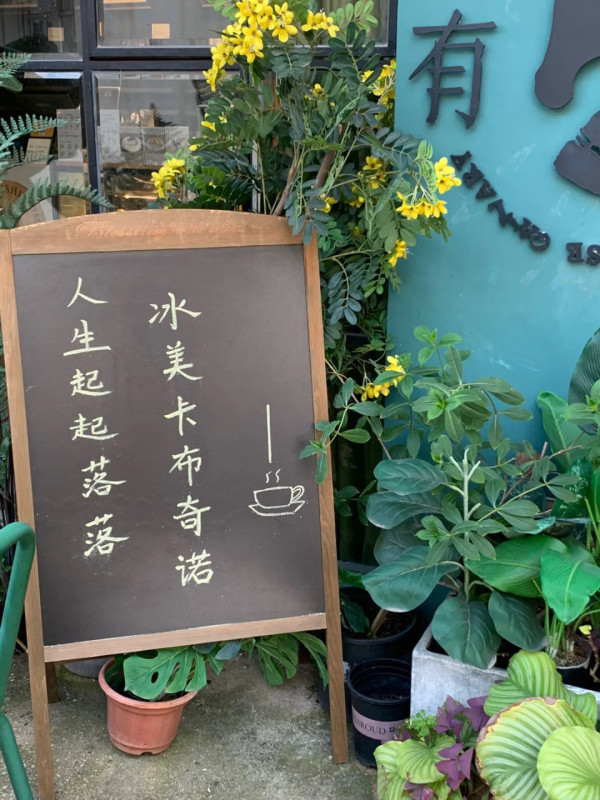 冰美卡布奇诺
人生起起落落
有
SE